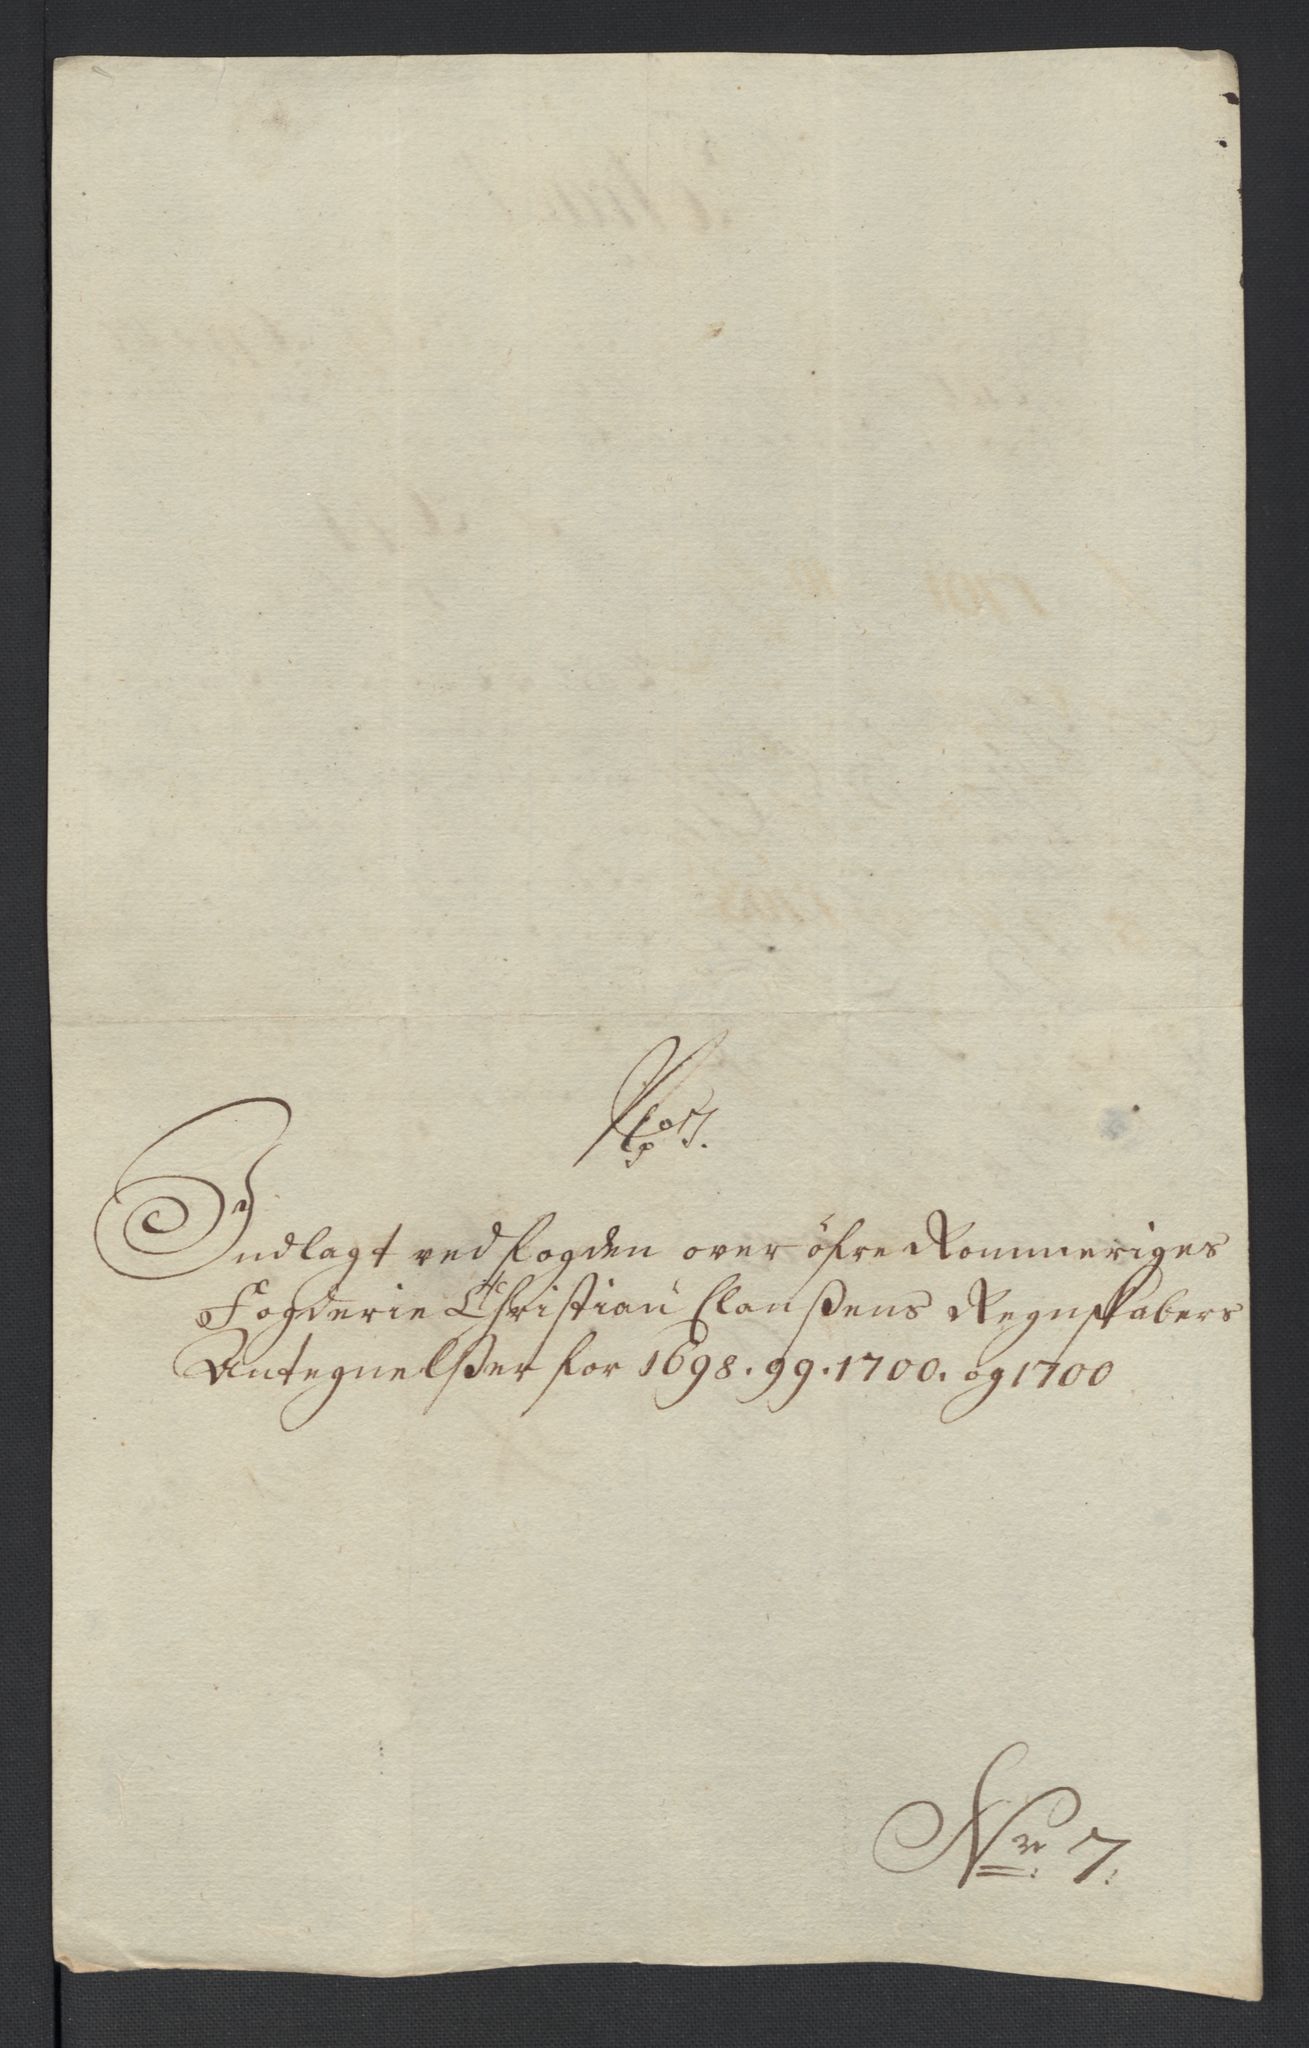 No 7.
Indlagt ved fogden over öfre Rommeriges
Fogderie Christian Clausßens Regnskabers
Antegnelsßer for 1698. 99. 1700. og 1700
Nr. 7.